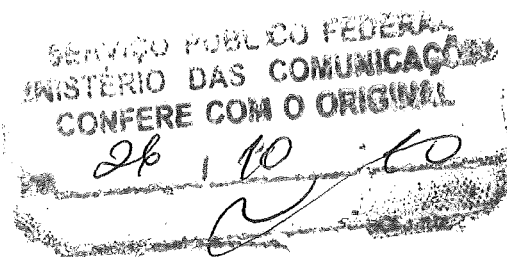 SERVIÇO PUBLICO FEDERAL
MINISTÉRIO DAS COMUNICAÇÕES
CONFERE COM O ORIGINAL
26 / 10 / 10